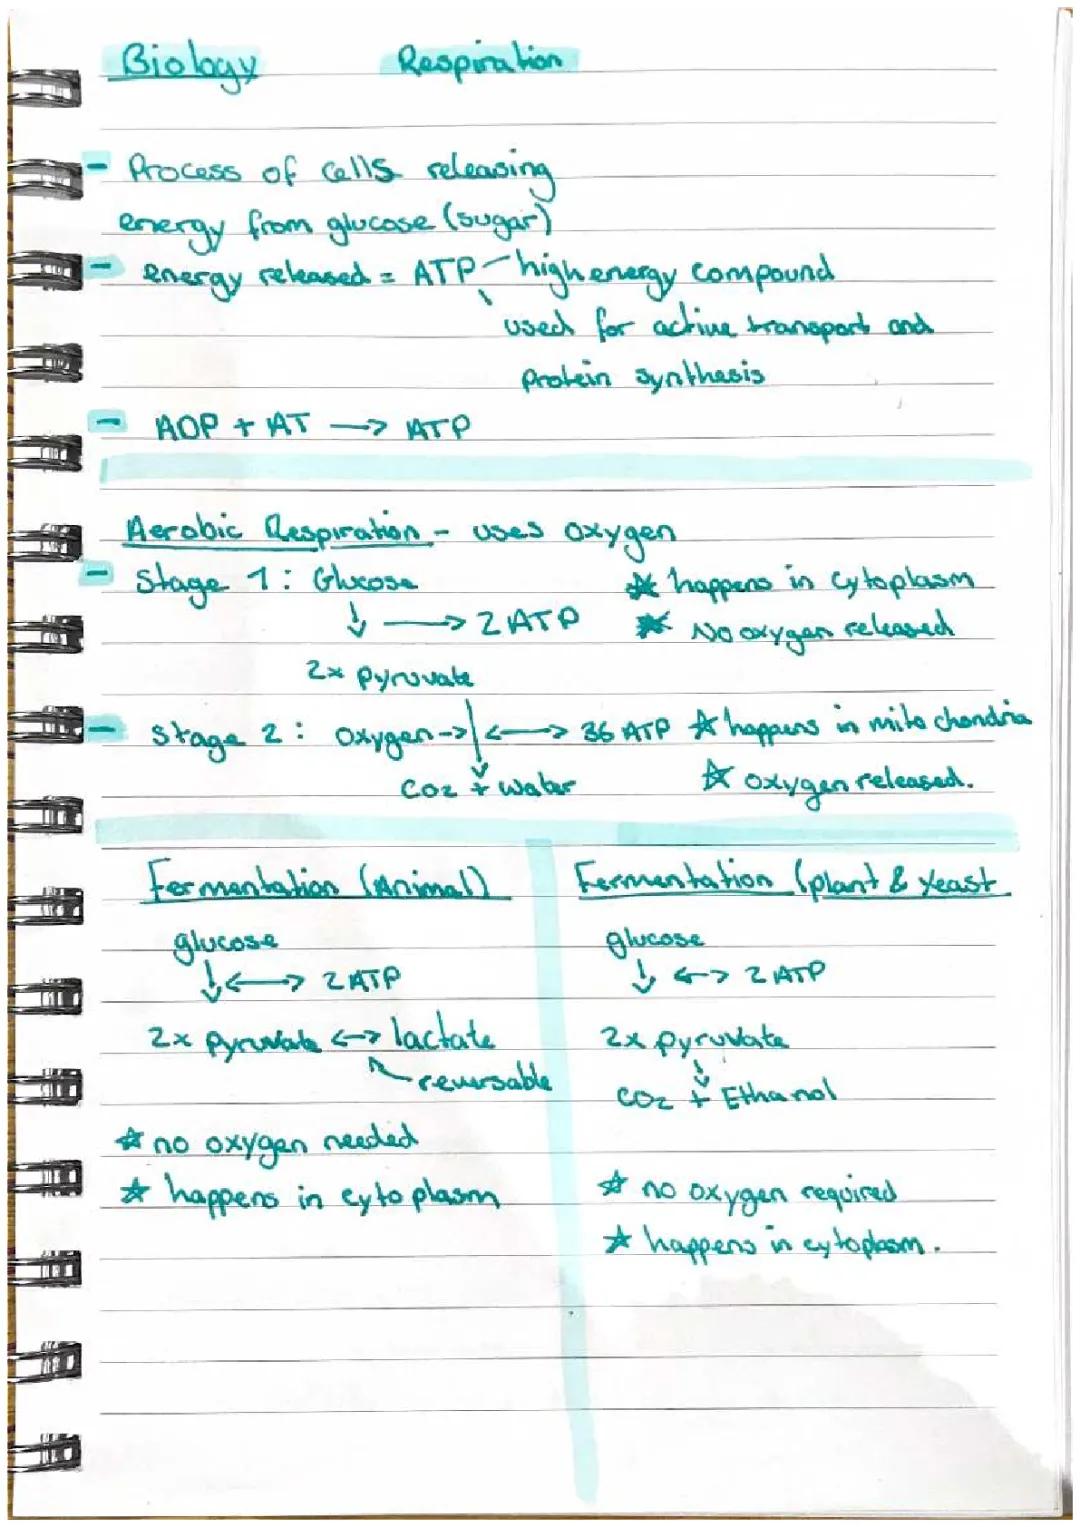 Biology Respiration
- Process of cells releasing
energy from glucose (sugar)
- energy released = ATP - high energy compound
used for active transport and
protein synthesis
- ADP + AT → ATP
Aerobic Respiration - uses oxygen
- Stage 1: Glucose ☆ happens in cytoplasm
↓ → 2 ATP ☆ No oxygen released
2x pyruvate
- Stage 2: Oxygen → ↓ ↔ 36 ATP ☆ happens in mitochondria
CO2 + water ☆ oxygen released.
Fermentation (Animal)
glucose
↓ ↔ 2 ATP
2x pyruvate ↔ lactate
reversable
☆ no oxygen needed
☆ happens in cytoplasm
Fermentation (plant & yeast
glucose
↓ ↔ 2 ATP
2x pyruvate
↓
CO2 + Ethanol
☆ no oxygen required
☆ happens in cytoplasm.